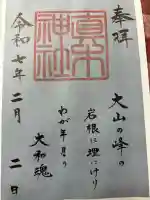 奉拝
大山の峰の
岩根に埋にけり
わが年月の
大和魂
真木
神社
令和七年二月二日